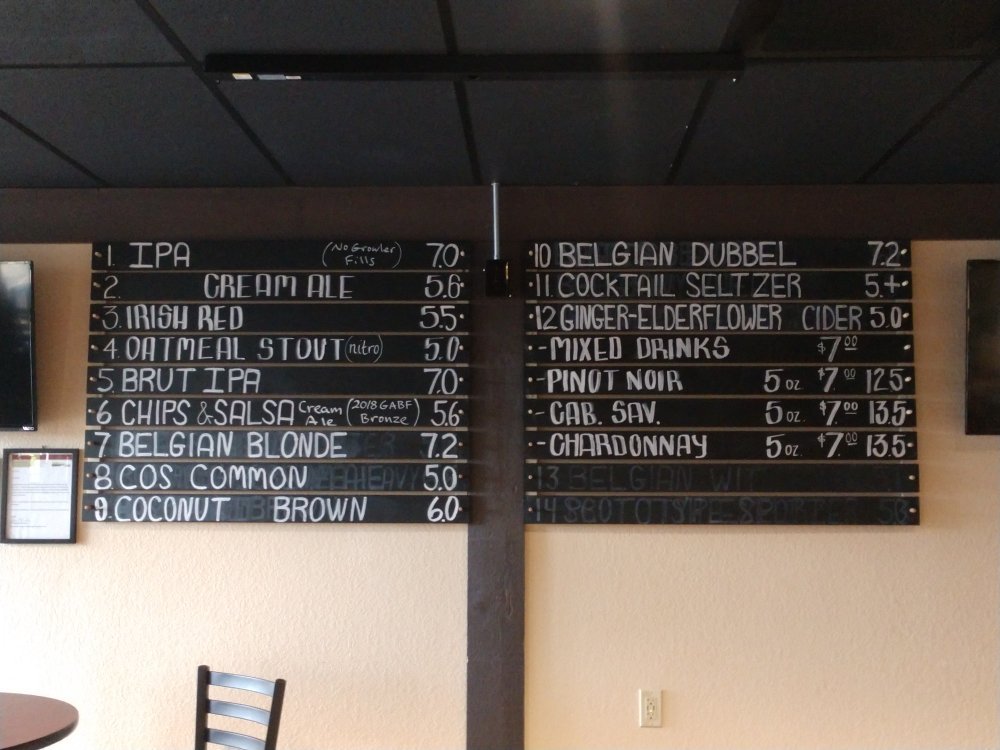 1. IPA (No Growler Fills) 7.0
2. CREAM ALE 5.6
3. IRISH RED 5.5
4. OATMEAL STOUT (nitro) 5.0
5. BRUT IPA 7.0
6. CHIPS & SALSA Cream Ale (2018 GABF Bronze) 5.6
7 BELGIAN BLONDE 7.2
8 COS COMMON 5.0
9. COCONUT BROWN 6.0
10 BELGIAN DUBBEL 7.2
11. COCKTAIL SELTZER 5.+
12 GINGER-ELDERFLOWER CIDER 5.0
-MIXED DRINKS $7.00
-PINOT NOIR 5 oz. $7.00 12.5
-CAB. SAV. 5 oz. $7.00 13.5
-CHARDONNAY 5 oz. $7.00 13.5
13 BELGIAN WIT
14